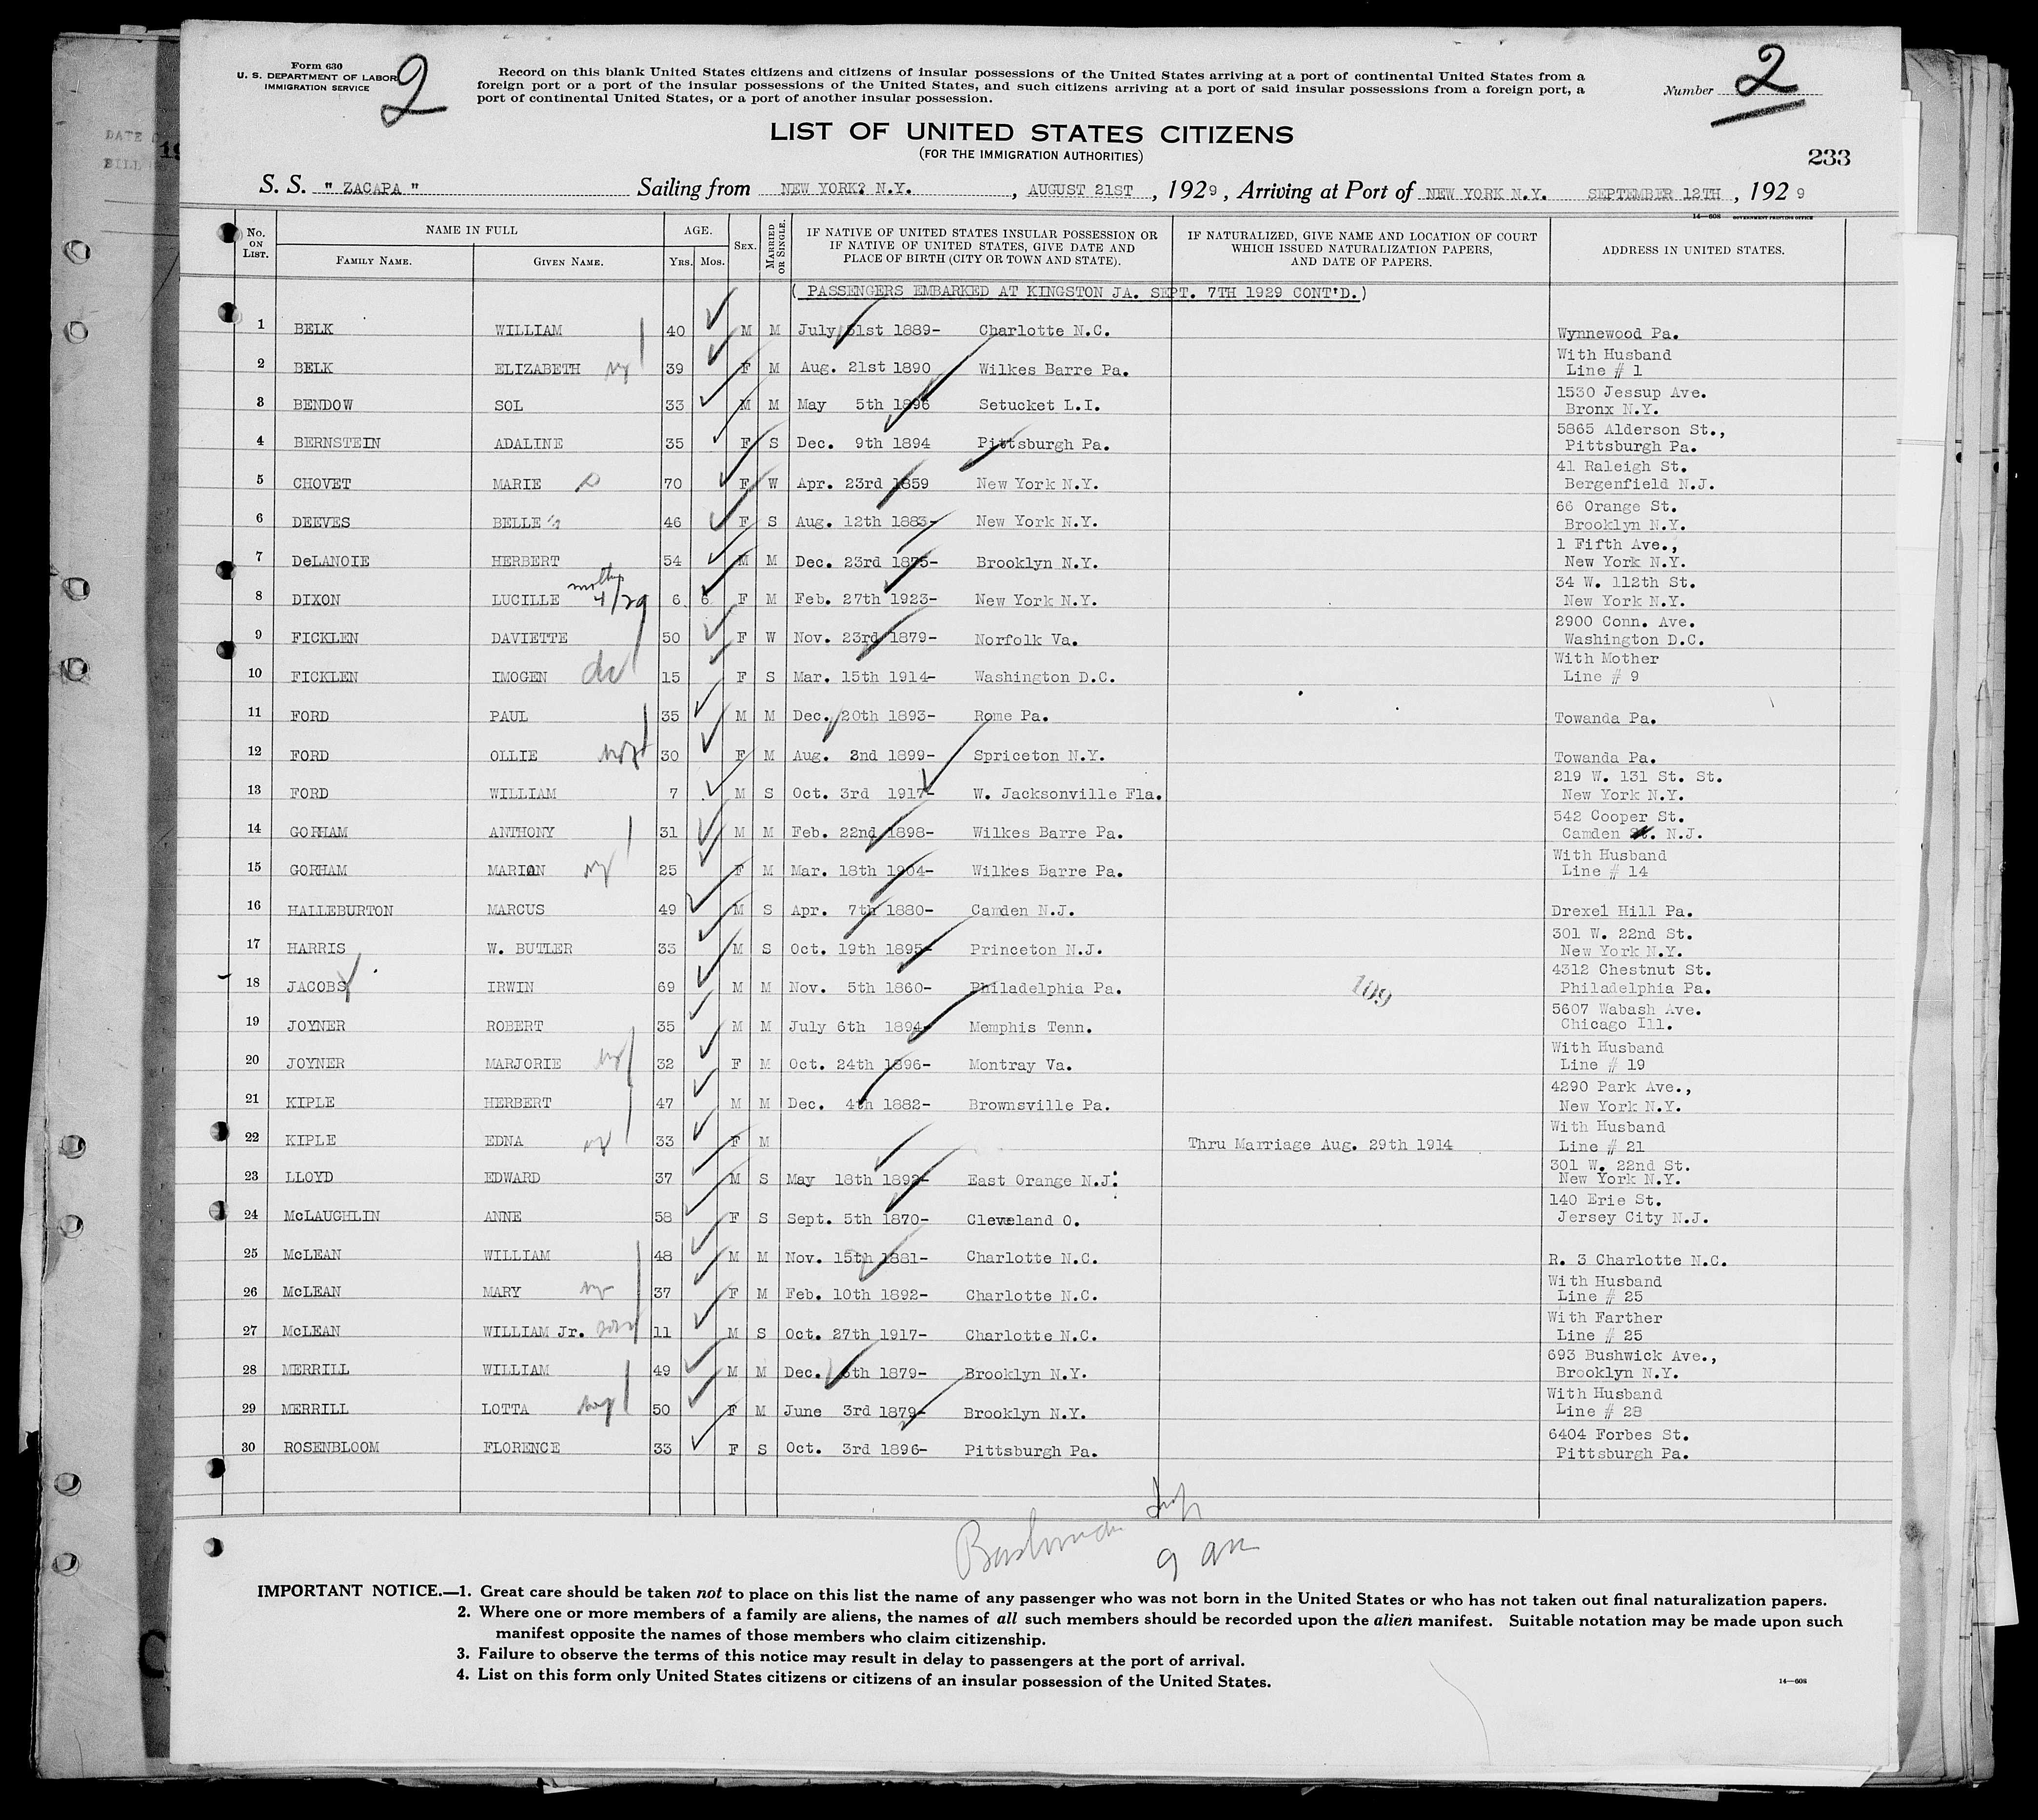 Form 630
U. S. DEPARTMENT OF LABOR
IMMIGRATION SERVICE
2
Record on this blank United States citizens and citizens of insular possessions of the United States arriving at a port of continental United States from a
foreign port or a port of the insular possessions of the United States, and such citizens arriving at a port of said insular possessions from a foreign port, a
port of continental United States, or a port of another insular possession.
Number 2
LIST OF UNITED STATES CITIZENS
(FOR THE IMMIGRATION AUTHORITIES)
233
S. S. " ZACAPA " Sailing from NEW YORK? N.Y. , AUGUST 21ST , 1929 , Arriving at Port of NEW YORK N.Y. SEPTEMBER 12TH , 1929
14—608 GOVERNMENT PRINTING OFFICE
No. ON LIST. NAME IN FULL FAMILY NAME. GIVEN NAME. AGE. YRS. MOS. SEX. MARRIED OR SINGLE. IF NATIVE OF UNITED STATES INSULAR POSSESSION OR IF NATIVE OF UNITED STATES, GIVE DATE AND PLACE OF BIRTH (CITY OR TOWN AND STATE). IF NATURALIZED, GIVE NAME AND LOCATION OF COURT WHICH ISSUED NATURALIZATION PAPERS, AND DATE OF PAPERS. ADDRESS IN UNITED STATES.
( PASSENGERS EMBARKED AT KINGSTON JA. SEPT. 7TH 1929 CONT'D.)
1 BELK WILLIAM 40 M M July 31st 1889- Charlotte N.C. Wynnewood Pa.
2 BELK ELIZABETH 39 F M Aug. 21st 1890 Wilkes Barre Pa. With Husband Line # 1
3 BENDOW SOL 33 M M May 5th 1896 Setucket L.I. 1530 Jessup Ave. Bronx N.Y.
4 BERNSTEIN ADALINE 35 F S Dec. 9th 1894 Pittsburgh Pa. 5865 Alderson St., Pittsburgh Pa.
5 CHOVET MARIE 70 F W Apr. 23rd 1859 New York N.Y. 41 Raleigh St. Bergenfield N.J.
6 DEEVES BELLE 46 F S Aug. 12th 1883- New York N.Y. 66 Orange St. Brooklyn N.Y.
7 DeLANOIE HERBERT 54 M M Dec. 23rd 1875- Brooklyn N.Y. 1 Fifth Ave., New York N.Y.
8 DIXON LUCILLE 4/29 6 6 F M Feb. 27th 1923- New York N.Y. 34 W. 112th St. New York N.Y.
9 FICKLEN DAVIETTE 50 F W Nov. 23rd 1879- Norfolk Va. 2900 Conn. Ave. Washington D.C.
10 FICKLEN IMOGEN 15 F S Mar. 15th 1914- Washington D.C. With Mother Line # 9
11 FORD PAUL 35 M M Dec. 20th 1893- Rome Pa. Towanda Pa.
12 FORD OLLIE 30 F M Aug. 2nd 1899- Spriceton N.Y. Towanda Pa.
13 FORD WILLIAM 7 M S Oct. 3rd 1917- W. Jacksonville Fla. 219 W. 131 St. St. New York N.Y.
14 GORHAM ANTHONY 31 M M Feb. 22nd 1898- Wilkes Barre Pa. 542 Cooper St. Camden N.J.
15 GORHAM MARION 25 F M Mar. 18th 1904- Wilkes Barre Pa. With Husband Line # 14
16 HALLEBURTON MARCUS 49 M S Apr. 7th 1880- Camden N.J. Drexel Hill Pa.
17 HARRIS W. BUTLER 33 M S Oct. 19th 1895- Princeton N.J. 301 W. 22nd St. New York N.Y.
18 JACOBS IRWIN 69 M M Nov. 5th 1860- Philadelphia Pa. 109 4312 Chestnut St. Philadelphia Pa.
19 JOYNER ROBERT 35 M M July 6th 1894- Memphis Tenn. 5607 Wabash Ave. Chicago Ill.
20 JOYNER MARJORIE 32 F M Oct. 24th 1896- Montray Va. With Husband Line # 19
21 KIPLE HERBERT 47 M M Dec. 4th 1882- Brownsville Pa. 4290 Park Ave., New York N.Y.
22 KIPLE EDNA 33 F M Thru Marriage Aug. 29th 1914 With Husband Line # 21
23 LLOYD EDWARD 37 M S May 18th 1892- East Orange N.J. 301 W. 22nd St. New York N.Y.
24 McLAUGHLIN ANNE 58 F S Sept. 5th 1870- Cleveland O. 140 Erie St. Jersey City N.J.
25 McLEAN WILLIAM 48 M M Nov. 15th 1881- Charlotte N.C. R. 3 Charlotte N.C.
26 McLEAN MARY 37 F M Feb. 10th 1892- Charlotte N.C. With Husband Line # 25
27 McLEAN WILLIAM Jr. son 11 M S Oct. 27th 1917- Charlotte N.C. With Farther Line # 25
28 MERRILL WILLIAM 49 M M Dec. 8th 1879- Brooklyn N.Y. 693 Bushwick Ave., Brooklyn N.Y.
29 MERRILL LOTTA 50 F M June 3rd 1879- Brooklyn N.Y. With Husband Line # 28
30 ROSENBLOOM FLORENCE 33 F S Oct. 3rd 1896- Pittsburgh Pa. 6404 Forbes St. Pittsburgh Pa.
IMPORTANT NOTICE.—1. Great care should be taken not to place on this list the name of any passenger who was not born in the United States or who has not taken out final naturalization papers.
2. Where one or more members of a family are aliens, the names of all such members should be recorded upon the alien manifest. Suitable notation may be made upon such
manifest opposite the names of those members who claim citizenship.
3. Failure to observe the terms of this notice may result in delay to passengers at the port of arrival.
4. List on this form only United States citizens or citizens of an insular possession of the United States.
14—608